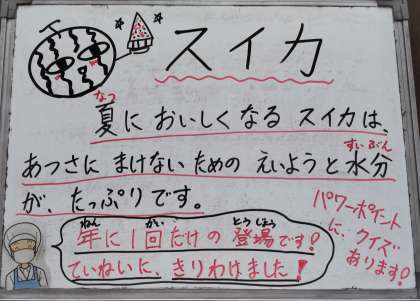 スイカ
夏に おいしくなる スイカは、
なつ
あつさに まけない ための えいようと 水分
すいぶん
が、たっぷりです。
年に1回だけの 登場です!
ねん かい とうじょう
ていねいに、きりわけました!
パワーポイント
に、クイズ
あります!